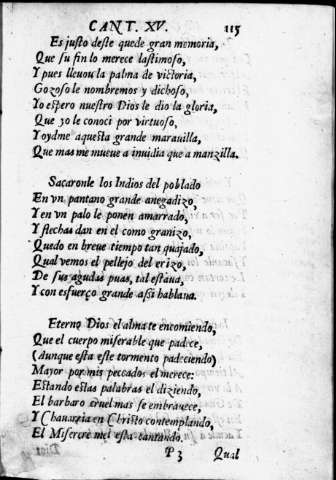 CANT. XV. 115
Es justo deste quede gran memoria,
Que su fin lo merece lastimoso,
Y pues lleuou la palma de victoria,
Gozoso le nombremos y dichoso,
Yo espero nuestro Dios le dio la gloria,
Que 30 le conoci por virtuoso,
Y oydme aquesta grande marauilla,
Que mas me mueue a inuidia que a manzilla.
Sacaronle los Indios del poblado
En vn pantano grande anegadizo,
Y en vn palo le ponen amarrado,
Y flechas dan en el como granizo,
Quedo en breue tiempo tan quajado,
Qual vemos el pellejo del erizo,
De sus agudas puas, tal estaua,
Y con esfuerço grande assi hablaua.
Eterno Dios el alma te encomiendo,
Que el cuerpo miserable que padece,
(Aunque esta este tormento padeciendo)
Mayor por mis peccados el merece:
Estando estas palabras el diziendo,
El barbaro cruel mas se embrauece,
Y Chauarria en Christo contemplando,
El Miserere mei esta cantando.
P 3 Qual